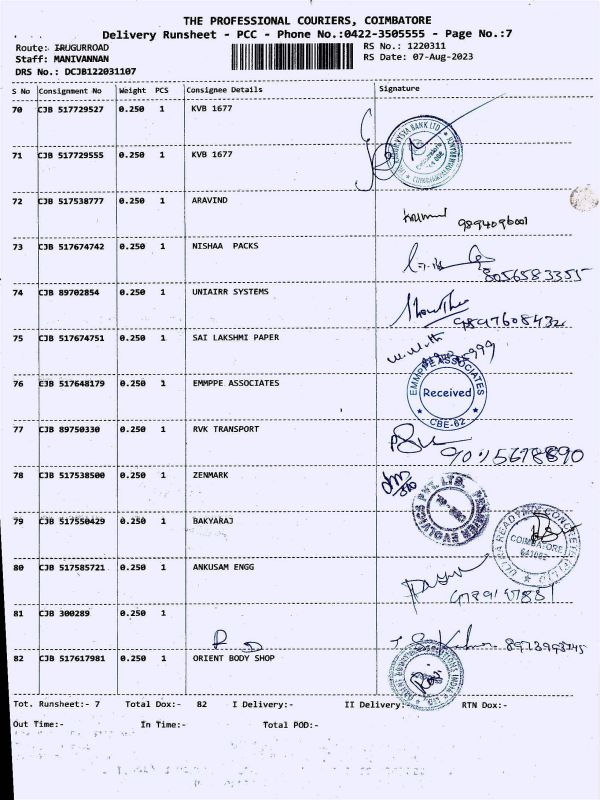 THE PROFESSIONAL COURIERS, COIMBATORE
Delivery Runsheet - PCC - Phone No.:0422-3505555 - Page No.:7
Route: IRUGURROAD RS No.: 1220311
Staff: MANIVANNAN RS Date: 07-Aug-2023
DRS No.: DCJB122031107
S No Consignment No Weight PCS Consignee Details Signature
70 CJB 517729527 0.250 1 KVB 1677
71 CJB 517729555 0.250 1 KVB 1677
72 CJB 517538777 0.250 1 ARAVIND
9894096001
73 CJB 517674742 0.250 1 NISHAA PACKS
8056583355
74 CJB 89702854 0.250 1 UNIAIRR SYSTEMS
75 CJB 517674751 0.250 1 SAI LAKSHMI PAPER
76 CJB 517648179 0.250 1 EMMPPE ASSOCIATES
EMMPPE ASSOCIATES
Received
CBE-62
77 CJB 89750330 0.250 1 RVK TRANSPORT
78 CJB 517538500 0.250 1 ZENMARK
79 CJB 517550429 0.250 1 BAKYARAJ
COIMBATORE
641062
80 CJB 517585721 0.250 1 ANKUSAM ENGG
81 CJB 300289 0.250 1
82 CJB 517617981 0.250 1 ORIENT BODY SHOP
Tot. Runsheet:- 7 Total Dox:- 82 I Delivery:- II Delivery:- RTN Dox:-
Out Time:- In Time:- Total POD:-